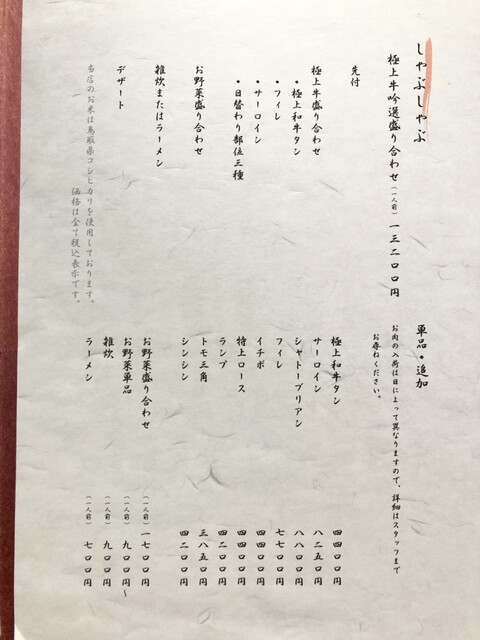 しゃぶしゃぶ
極上牛吟選盛り合わせ（一人前）一三二〇〇円
先付
極上牛盛り合わせ
・極上和牛タン
・フィレ
・サーロイン
・日替わり部位三種
お野菜盛り合わせ
雑炊またはラーメン
デザート
当店のお米は鳥取県コシヒカリを使用しております。
価格は全て税込表示です。
単品・追加
お肉の入荷は日によって異なりますので、詳細はスタッフまで
お尋ねください。
極上和牛タン 四四〇〇円
サーロイン 八二五〇円
シャトーブリアン 八八〇〇円
フィレ 七七〇〇円
イチボ 四四〇〇円
特上ロース 四四〇〇円
ランプ 四二〇〇円
トモ三角 三八五〇円
シンシン 四二〇〇円
お野菜盛り合わせ （一人前）一七〇〇円
お野菜単品 （一人前）九〇〇円〜
雑炊 （一人前）九〇〇円
ラーメン （一人前）七〇〇円